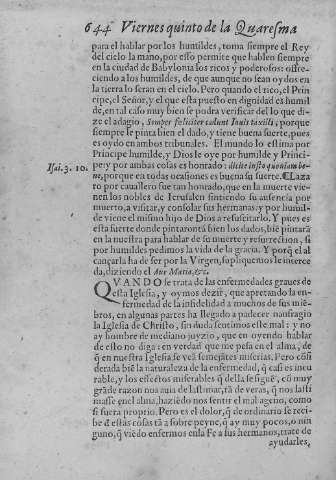 644 Viernes quinto de la Quaresma
para el hablar por los humildes, toma siempre el Rey
del cielo la mano, por esso permite que hablen siempre
en la ciudad de Babylonia los ricos y poderosos: ofre-
ciendo a los humildes, de que aunque no sean oydos en
la tierra lo seran en el cielo. Pero quando el rico, el Prin
cipe, el Señor, y el que esta puesto en dignidad es humil
de, en tal caso muy bien se podra verificar del lo que di-
ze el adagio, Semper feliciter cadunt Iouis taxilli, porque
siempre le pinta bien el dado, y tiene buena suerte, pues
es oydo en ambos tribunales. El mundo lo estima por
Principe humilde, y Dios le oye por humilde y Princi-
pe, y por ambas cosas es honrado: dicite iusto quoniam be-
Isai. 3. 10.
ne, porque en todas ocasiones es buena su suerte. Laza
ro por cauallero fue tan honrado, que en la muerte vie-
nen los nobles de Ierusalen sintiendo su ausencia por
muerto, a visitar, y consolar sus hermanas: y por humil-
de viene el mismo hijo de Dios a resuscitarlo. Y pues es
esta suerte donde pintaron tã bien los dados, biẽ pintarà
en la nuestra para hablar de su muerte y resurrection, si
por humildes pedimos la vida de la gracia. Y porq̃ el al
cançarla ha de ser por la Virgen, supliquemosle interce
da, diziendo el Aue Maria, &c.
QVANDO se trata de las enfermedades graues de
esta Iglesia, y oymos dezir, que apretando la en-
fermedad de la infidelidad a muchos de sus miē-
bros, en algunas partes ha llegado a padecer naufragio
la Iglesia de Christo, sin duda sentimos este mal: y no
ay hombre de mediano juyzio, que en oyendo hablar
de ello no diga en verdad que me pesa en el alma, de
q̃ en nuestra Iglesia se veã semejãtes miserias. Pero cõsi
derada biẽ la naturaleza de la enfermedad, q̃ casi es incu
rable, y los effectos miserables q̃ della se siguẽ, cõ muy
grãde razon nos auia de lastimar, tã de veras, q̃ nos lasti
masse en el alma, haziẽdo nos sentir el mal ageno, como
si fuera proprio. Pero es el dolor, q̃ de ordinario se reci-
be d̃ estas cosas tã a sobre peyne, q̃ ay muy pocos, o nin
guno, q̃ viẽdo enfermos en la Fe a sus hermanos, trate de
ayudarles,